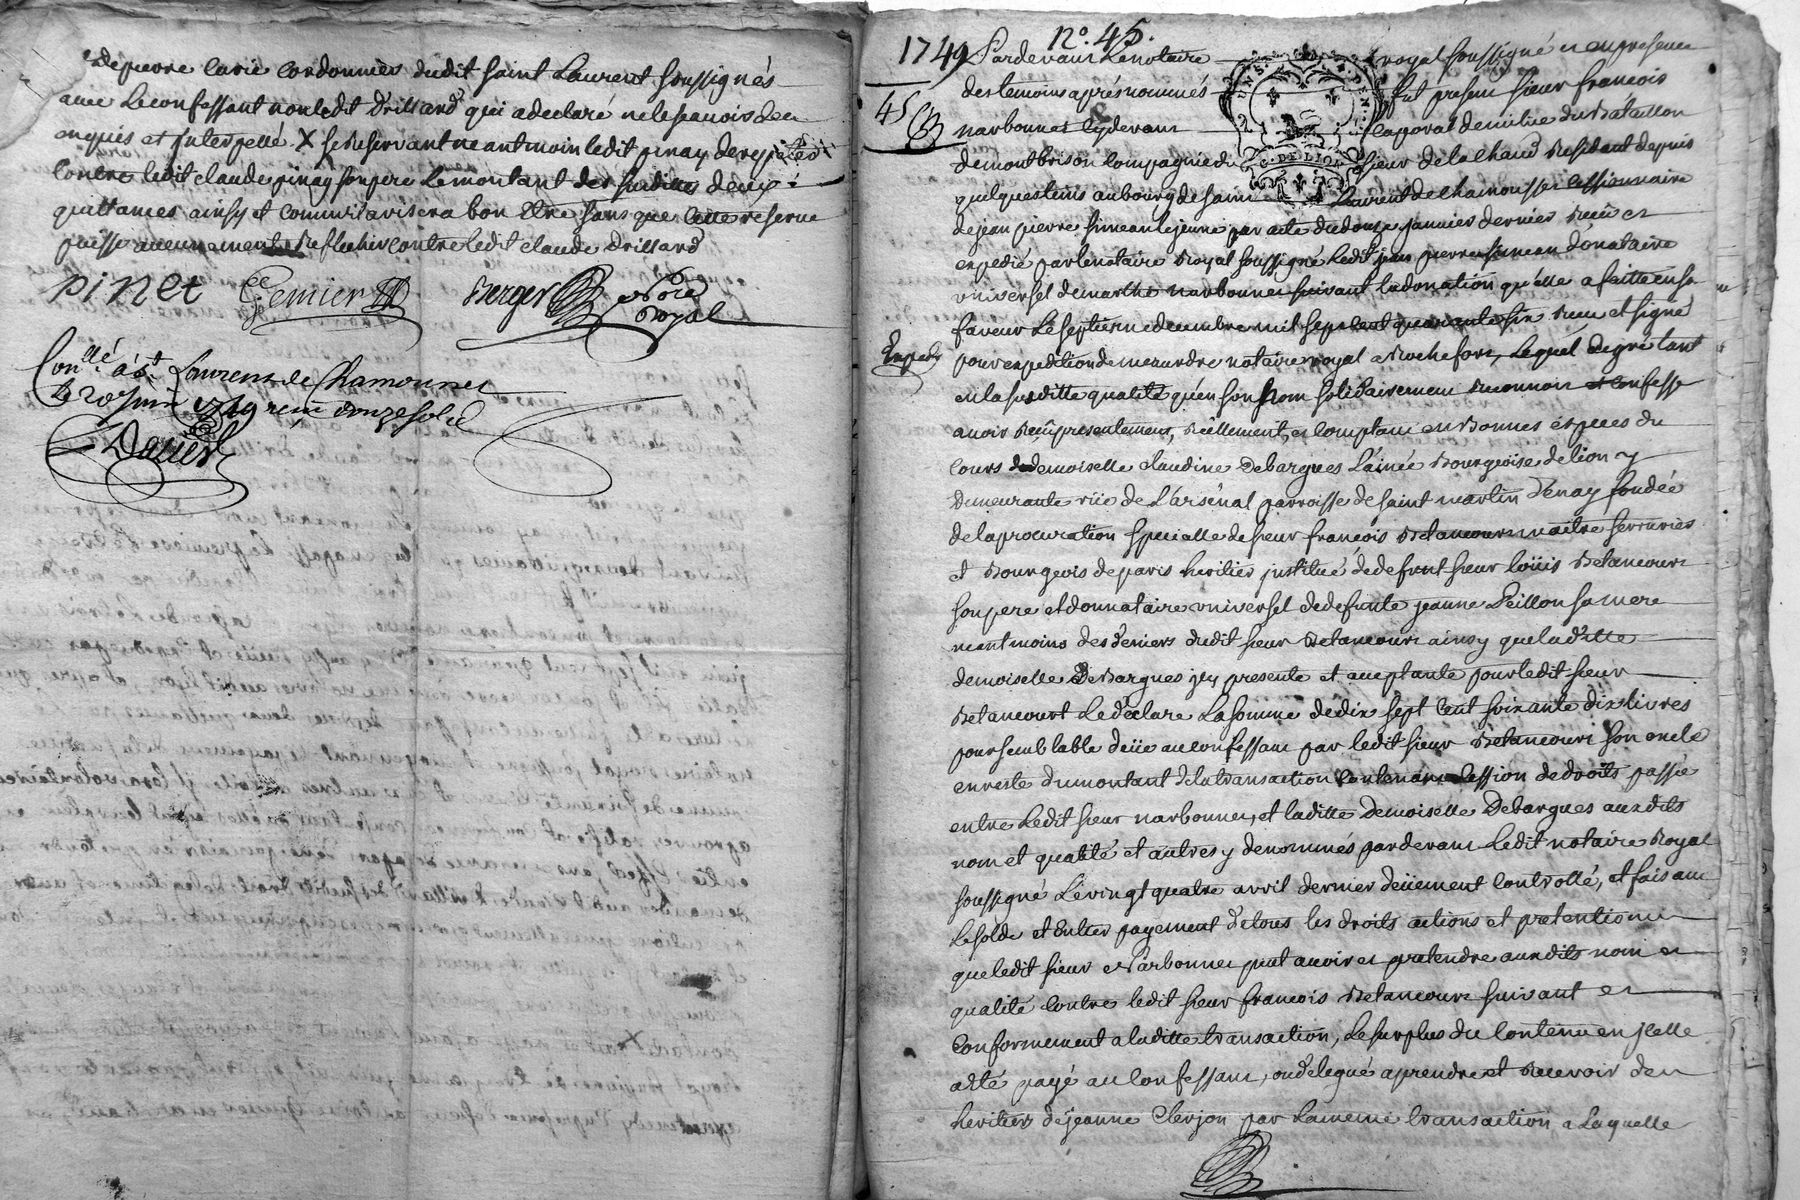 de pierre carié cordonnier dudit saint Laurent soussignés
avec le confessant non ledit drillard qui a declaré ne le scavoir de ce
enquis et interpellé X se reservant neantmoin ledit pinay de repeter
contre ledit claude pinay son pere le montant des susdittes deux
quittances ainsy et comm'il avisera bon etre sans que cette reserve
puisse aucunement reflechir contre ledit claude drillard
pinet Gemier Berger No.re Royal
Con.llé à S.t Laurens de Chamousset
le 20e Juin 1749 reçu douze sols
Daviet
1749 N.o 45.
45
Pardevant Le notaire royal soussigné et en presence
des temoins aprés nommés fut present sieur francois
narbonnes cydevant caporal de milice du Bataillon
de montbrison compagnie du sieur de la chaud Residant depuis
quelques tems au bourg de saint Laurent de chamousset cessionnaire
de jean pierre simean le jeune par acte du douze janvier dernier Recü et
expedié par le notaire Royal soussigné ledit jean pierre simean donataire
universel de marthe narbonnes suivant la donation qu'elle a faitte en sa
faveur Le septieme decembre mil sept cent quarante six Receu et signé
Exped.
pour expedition demeurdre notaire royal a Rochefort, Lequel de gré tant
en la susditte qualité qu'en son nom solidairement Reconnoit et confesse
avoir Reçü presentement, Réellement, et comptant en Bonnes éspeces du
cours de demoiselle claudine Debargues L'ainée Bourgeoise de lion y
Demeurante rüe de L'arsenal parroisse de saint martin d'enay fondée
de la procuration specialle de sieur francois Betancourt maitre serrurier
et Bourgeois de paris heritier institué de defunt sieur loüis Betancourt
son pere et donnataire universel de defunte jeanne Peillon sa mere
neantmoins des deniers dudit sieur Betancourt ainsy que laditte
demoiselle DeBargues jcy presente et acceptante pour ledit sieur
Betancourt Le declare La somme de dix sept cent soixante dix livres
pour semblable deüe au confessant par ledit sieur Betancourt son oncle
en reste du montant de la transaction contenant Cession de droits passée
entre Ledit sieur narbonnes, et laditte Demoiselle Debargues auxdits
nom et qualité et autres y denommés pardevant Ledit notaire Royal
soussigné Le vingt quatre avril dernier deüement controllé, et faisant
Le solde et Entier payement de tous les droits actions et pretentions
que ledit sieur Narbonnes peut avoir et pretendre auxdits nom et
qualité contre ledit sieur francois Betancourt suivant et
Conformement a laditte transaction, Le surplus du contenu en jcelle
aété payé au confessant, ou delegué a prendre et Recevoir des
heritiers de jeanne Clerjon par La meme transaction a Laquelle